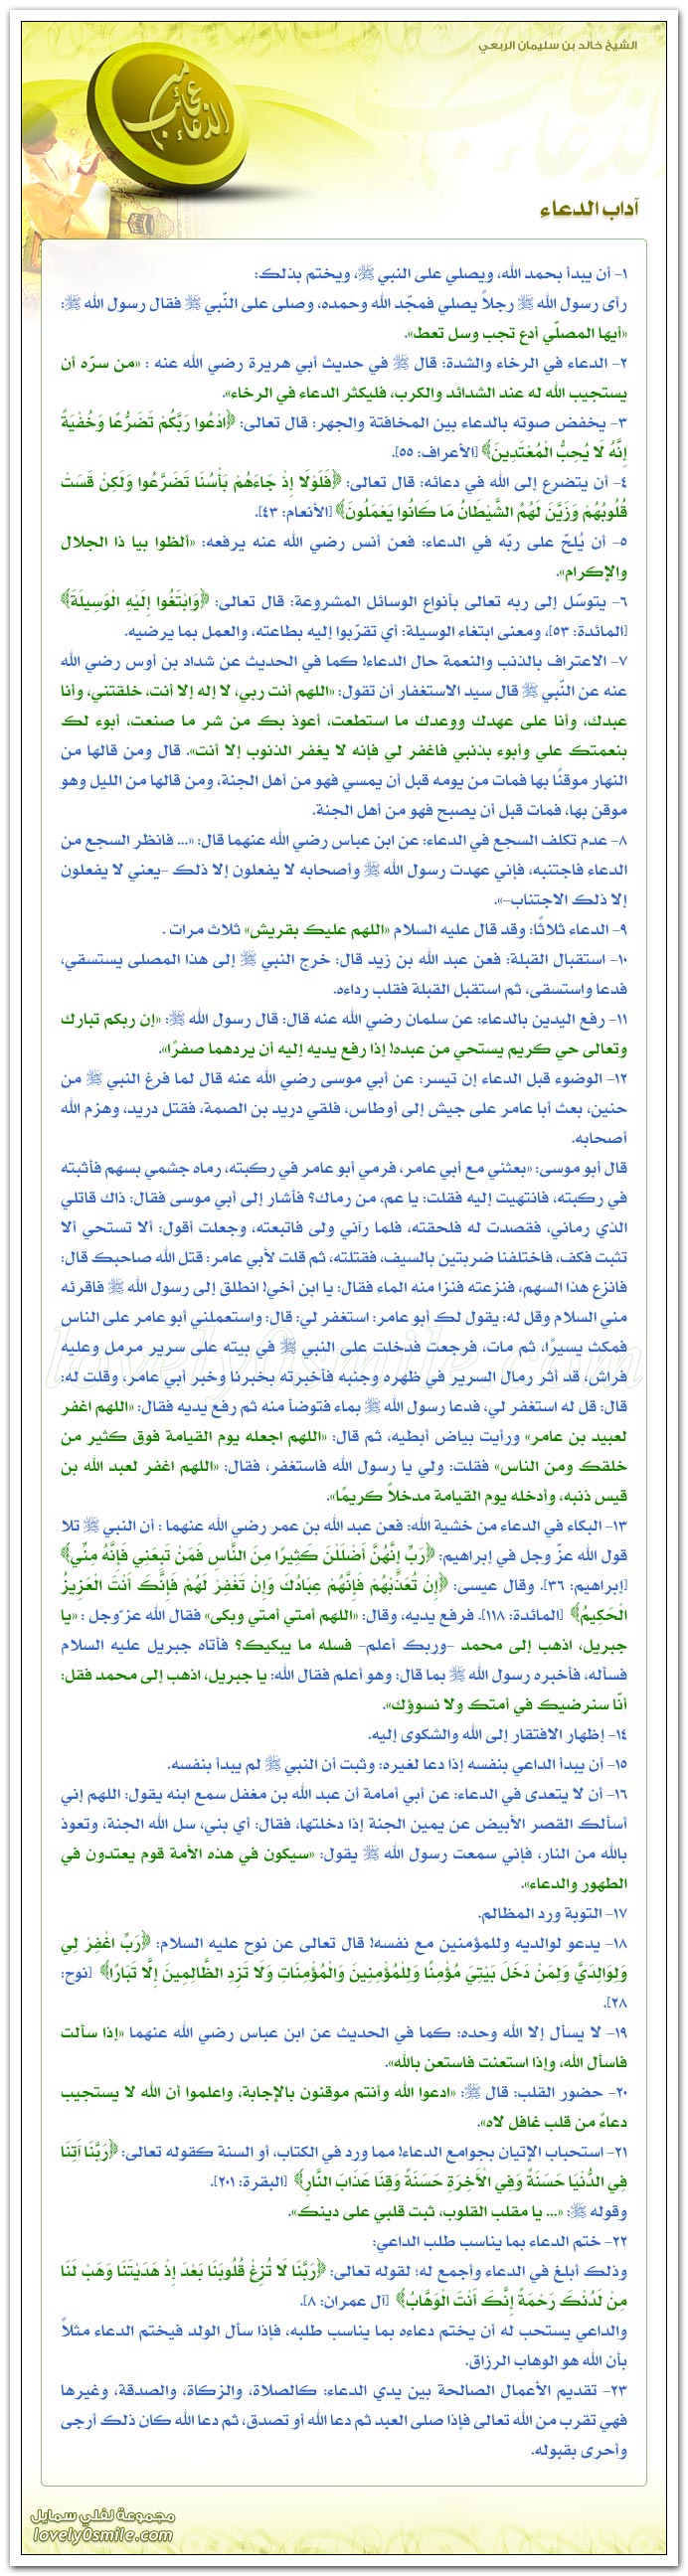 الشيخ خالد بن سليمان الربعي
من عجائب الدعاء
آداب الدعاء
١- أن يبدأ بحمد الله، ويصلي على النبي ﷺ، ويختم بذلك:
رأى رسول الله ﷺ رجلاً يصلي فمجّد الله وحمده، وصلى على النّبي ﷺ فقال رسول الله ﷺ:
«أيها المصلّي أدع تجب وسل تعط».
٢- الدعاء في الرخاء والشدة: قال ﷺ في حديث أبي هريرة رضي الله عنه : «من سرّه أن
يستجيب الله له عند الشدائد والكرب، فليكثر الدعاء في الرخاء».
٣- يخفض صوته بالدعاء بين المخافتة والجهر: قال تعالى: ﴿ادْعُوا رَبَّكُمْ تَضَرُّعًا وَخُفْيَةً
إِنَّهُ لَا يُحِبُّ الْمُعْتَدِينَ﴾ [الأعراف: ٥٥].
٤- أن يتضرع إلى الله في دعائه: قال تعالى: ﴿فَلَوْلَا إِذْ جَاءَهُمْ بَأْسُنَا تَضَرَّعُوا وَلَكِنْ قَسَتْ
قُلُوبُهُمْ وَزَيَّنَ لَهُمُ الشَّيْطَانُ مَا كَانُوا يَعْمَلُونَ﴾ [الأنعام: ٤٣].
٥- أن يُلحّ على ربّه في الدعاء: فعن أنس رضي الله عنه يرفعه: «ألظوا بيا ذا الجلال
والإكرام».
٦- يتوسّل إلى ربه تعالى بأنواع الوسائل المشروعة: قال تعالى: ﴿وَابْتَغُوا إِلَيْهِ الْوَسِيلَةَ﴾
[المائدة: ٥٣]، ومعنى ابتغاء الوسيلة: أي تقرّبوا إليه بطاعته، والعمل بما يرضيه.
٧- الاعتراف بالذنب والنعمة حال الدعاء! كما في الحديث عن شداد بن أوس رضي الله
عنه عن النّبي ﷺ قال سيد الاستغفار أن تقول: «اللهم أنت ربي، لا إله إلا أنت، خلقتني، وأنا
عبدك، وأنا على عهدك ووعدك ما استطعت، أعوذ بك من شر ما صنعت، أبوء لك
بنعمتك علي وأبوء بذنبي فاغفر لي فإنه لا يغفر الذنوب إلا أنت». قال ومن قالها من
النهار موقنًا بها فمات من يومه قبل أن يمسي فهو من أهل الجنة، ومن قالها من الليل وهو
موقن بها، فمات قبل أن يصبح فهو من أهل الجنة.
٨- عدم تكلف السجع في الدعاء: عن ابن عباس رضي الله عنهما قال: «... فانظر السجع من
الدعاء فاجتنبه، فإني عهدت رسول الله ﷺ وأصحابه لا يفعلون إلا ذلك -يعني لا يفعلون
إلا ذلك الاجتناب-».
٩- الدعاء ثلاثًا: وقد قال عليه السلام «اللهم عليك بقريش» ثلاث مرات .
١٠- استقبال القبلة: فعن عبد الله بن زيد قال: خرج النبي ﷺ إلى هذا المصلى يستسقي،
فدعا واستسقى، ثم استقبل القبلة فقلب رداءه.
١١- رفع اليدين بالدعاء: عن سلمان رضي الله عنه قال: قال رسول الله ﷺ: «إن ربكم تبارك
وتعالى حي كريم يستحي من عبده! إذا رفع يديه إليه أن يردهما صفرًا».
١٢- الوضوء قبل الدعاء إن تيسر: عن أبي موسى رضي الله عنه قال لما فرغ النبي ﷺ من
حنين، بعث أبا عامر على جيش إلى أوطاس، فلقي دريد بن الصمة، فقتل دريد، وهزم الله
أصحابه.
قال أبو موسى: «بعثني مع أبي عامر، فرمي أبو عامر في ركبته، رماه جشمي بسهم فأثبته
في ركبته، فانتهيت إليه فقلت: يا عم، من رماك؟ فأشار إلى أبي موسى فقال: ذاك قاتلي
الذي رماني، فقصدت له فلحقته، فلما رآني ولى فاتبعته، وجعلت أقول: ألا تستحي ألا
تثبت فكف، فاختلفنا ضربتين بالسيف، فقتلته، ثم قلت لأبي عامر: قتل الله صاحبك قال:
فانزع هذا السهم، فنزعته فنزا منه الماء فقال: يا ابن أخي! انطلق إلى رسول الله ﷺ فاقرئه
مني السلام وقل له: يقول لك أبو عامر: استغفر لي: قال: واستعملني أبو عامر على الناس
فمكث يسيرًا، ثم مات، فرجعت فدخلت على النبي ﷺ في بيته على سرير مرمل وعليه
فراش، قد أثر رمال السرير في ظهره وجنبه فأخبرته بخبرنا وخبر أبي عامر، وقلت له:
قال: قل له استغفر لي، فدعا رسول الله ﷺ بماء فتوضأ منه ثم رفع يديه فقال: «اللهم اغفر
لعبيد بن عامر» ورأيت بياض أبطيه، ثم قال: «اللهم اجعله يوم القيامة فوق كثير من
خلقك ومن الناس» فقلت: ولي يا رسول الله فاستغفر، فقال: «اللهم اغفر لعبد الله بن
قيس ذنبه، وأدخله يوم القيامة مدخلاً كريمًا».
١٣- البكاء في الدعاء من خشية الله: فعن عبد الله بن عمر رضي الله عنهما : أن النبي ﷺ تلا
قول الله عزّ وجل في إبراهيم: ﴿رَبِّ إِنَّهُنَّ أَضْلَلْنَ كَثِيرًا مِنَ النَّاسِ فَمَنْ تَبِعَنِي فَإِنَّهُ مِنِّي﴾
[إبراهيم: ٣٦]. وقال عيسى: ﴿إِنْ تُعَذِّبْهُمْ فَإِنَّهُمْ عِبَادُكَ وَإِنْ تَغْفِرْ لَهُمْ فَإِنَّكَ أَنْتَ الْعَزِيزُ
الْحَكِيمُ﴾ [المائدة: ١١٨]. فرفع يديه، وقال: «اللهم أمتي أمتي وبكى» فقال الله عزّوجل : «يا
جبريل، اذهب إلى محمد -وربك أعلم- فسله ما يبكيك؟ فأتاه جبريل عليه السلام
فسأله، فأخبره رسول الله ﷺ بما قال: وهو أعلم فقال الله: يا جبريل، اذهب إلى محمد فقل:
أنّا سنرضيك في أمتك ولا نسوؤك».
١٤- إظهار الافتقار إلى الله والشكوى إليه.
١٥- أن يبدأ الداعي بنفسه إذا دعا لغيره: وثبت أن النبي ﷺ لم يبدأ بنفسه.
١٦- أن لا يتعدى في الدعاء: عن أبي أمامة أن عبد الله بن مغفل سمع ابنه يقول: اللهم إني
أسألك القصر الأبيض عن يمين الجنة إذا دخلتها، فقال: أي بني، سل الله الجنة، وتعوذ
بالله من النار، فإني سمعت رسول الله ﷺ يقول: «سيكون في هذه الأمة قوم يعتدون في
الطهور والدعاء».
١٧- التوبة ورد المظالم.
١٨- يدعو لوالديه وللمؤمنين مع نفسه! قال تعالى عن نوح عليه السلام: ﴿رَبِّ اغْفِرْ لِي
وَلِوَالِدَيَّ وَلِمَنْ دَخَلَ بَيْتِيَ مُؤْمِنًا وَلِلْمُؤْمِنِينَ وَالْمُؤْمِنَاتِ وَلَا تَزِدِ الظَّالِمِينَ إِلَّا تَبَارًا﴾ [نوح:
٢٨].
١٩- لا يسأل إلا الله وحده: كما في الحديث عن ابن عباس رضي الله عنهما «إذا سألت
فاسأل الله، وإذا استعنت فاستعن بالله».
٢٠- حضور القلب: قال ﷺ: «ادعوا الله وأنتم موقنون بالإجابة، واعلموا أن الله لا يستجيب
دعاءً من قلب غافل لاه».
٢١- استحباب الإتيان بجوامع الدعاء! مما ورد في الكتاب، أو السنة كقوله تعالى: ﴿رَبَّنَا آتِنَا
فِي الدُّنْيَا حَسَنَةً وَفِي الْآخِرَةِ حَسَنَةً وَقِنَا عَذَابَ النَّارِ﴾ [البقرة: ٢٠١].
وقوله ﷺ: «... يا مقلب القلوب، ثبت قلبي على دينك».
٢٢- ختم الدعاء بما يناسب طلب الداعي:
وذلك أبلغ في الدعاء وأجمع له؛ لقوله تعالى: ﴿رَبَّنَا لَا تُزِغْ قُلُوبَنَا بَعْدَ إِذْ هَدَيْتَنَا وَهَبْ لَنَا
مِنْ لَدُنْكَ رَحْمَةً إِنَّكَ أَنْتَ الْوَهَّابُ﴾ [آل عمران: ٨].
والداعي يستحب له أن يختم دعاءه بما يناسب طلبه، فإذا سأل الولد فيختم الدعاء مثلاً
بأن الله هو الوهاب الرزاق.
٢٣- تقديم الأعمال الصالحة بين يدي الدعاء: كالصلاة، والزكاة، والصدقة، وغيرها
فهي تقرب من الله تعالى فإذا صلى العبد ثم دعا الله أو تصدق، ثم دعا الله كان ذلك أرجى
وأحرى بقبوله.
lovely0smile.com
مجموعة لفلي سمايل
lovely0smile.com